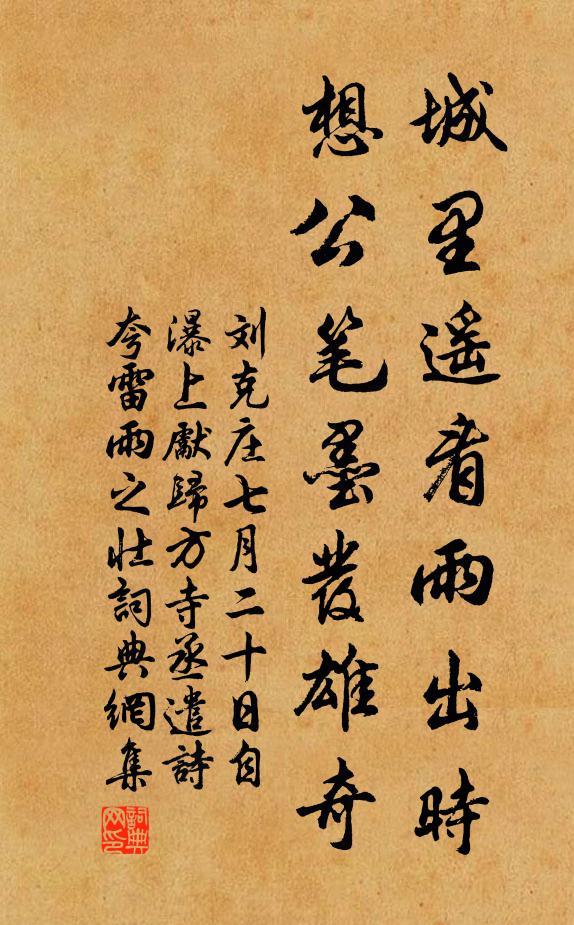 城里遥看雨出時
想公笔墨發雄奇
刘克庄七月二十日自
瀑上獻歸方寺丞遣詩
夸雷雨之壯詞典網集
詞典
网印